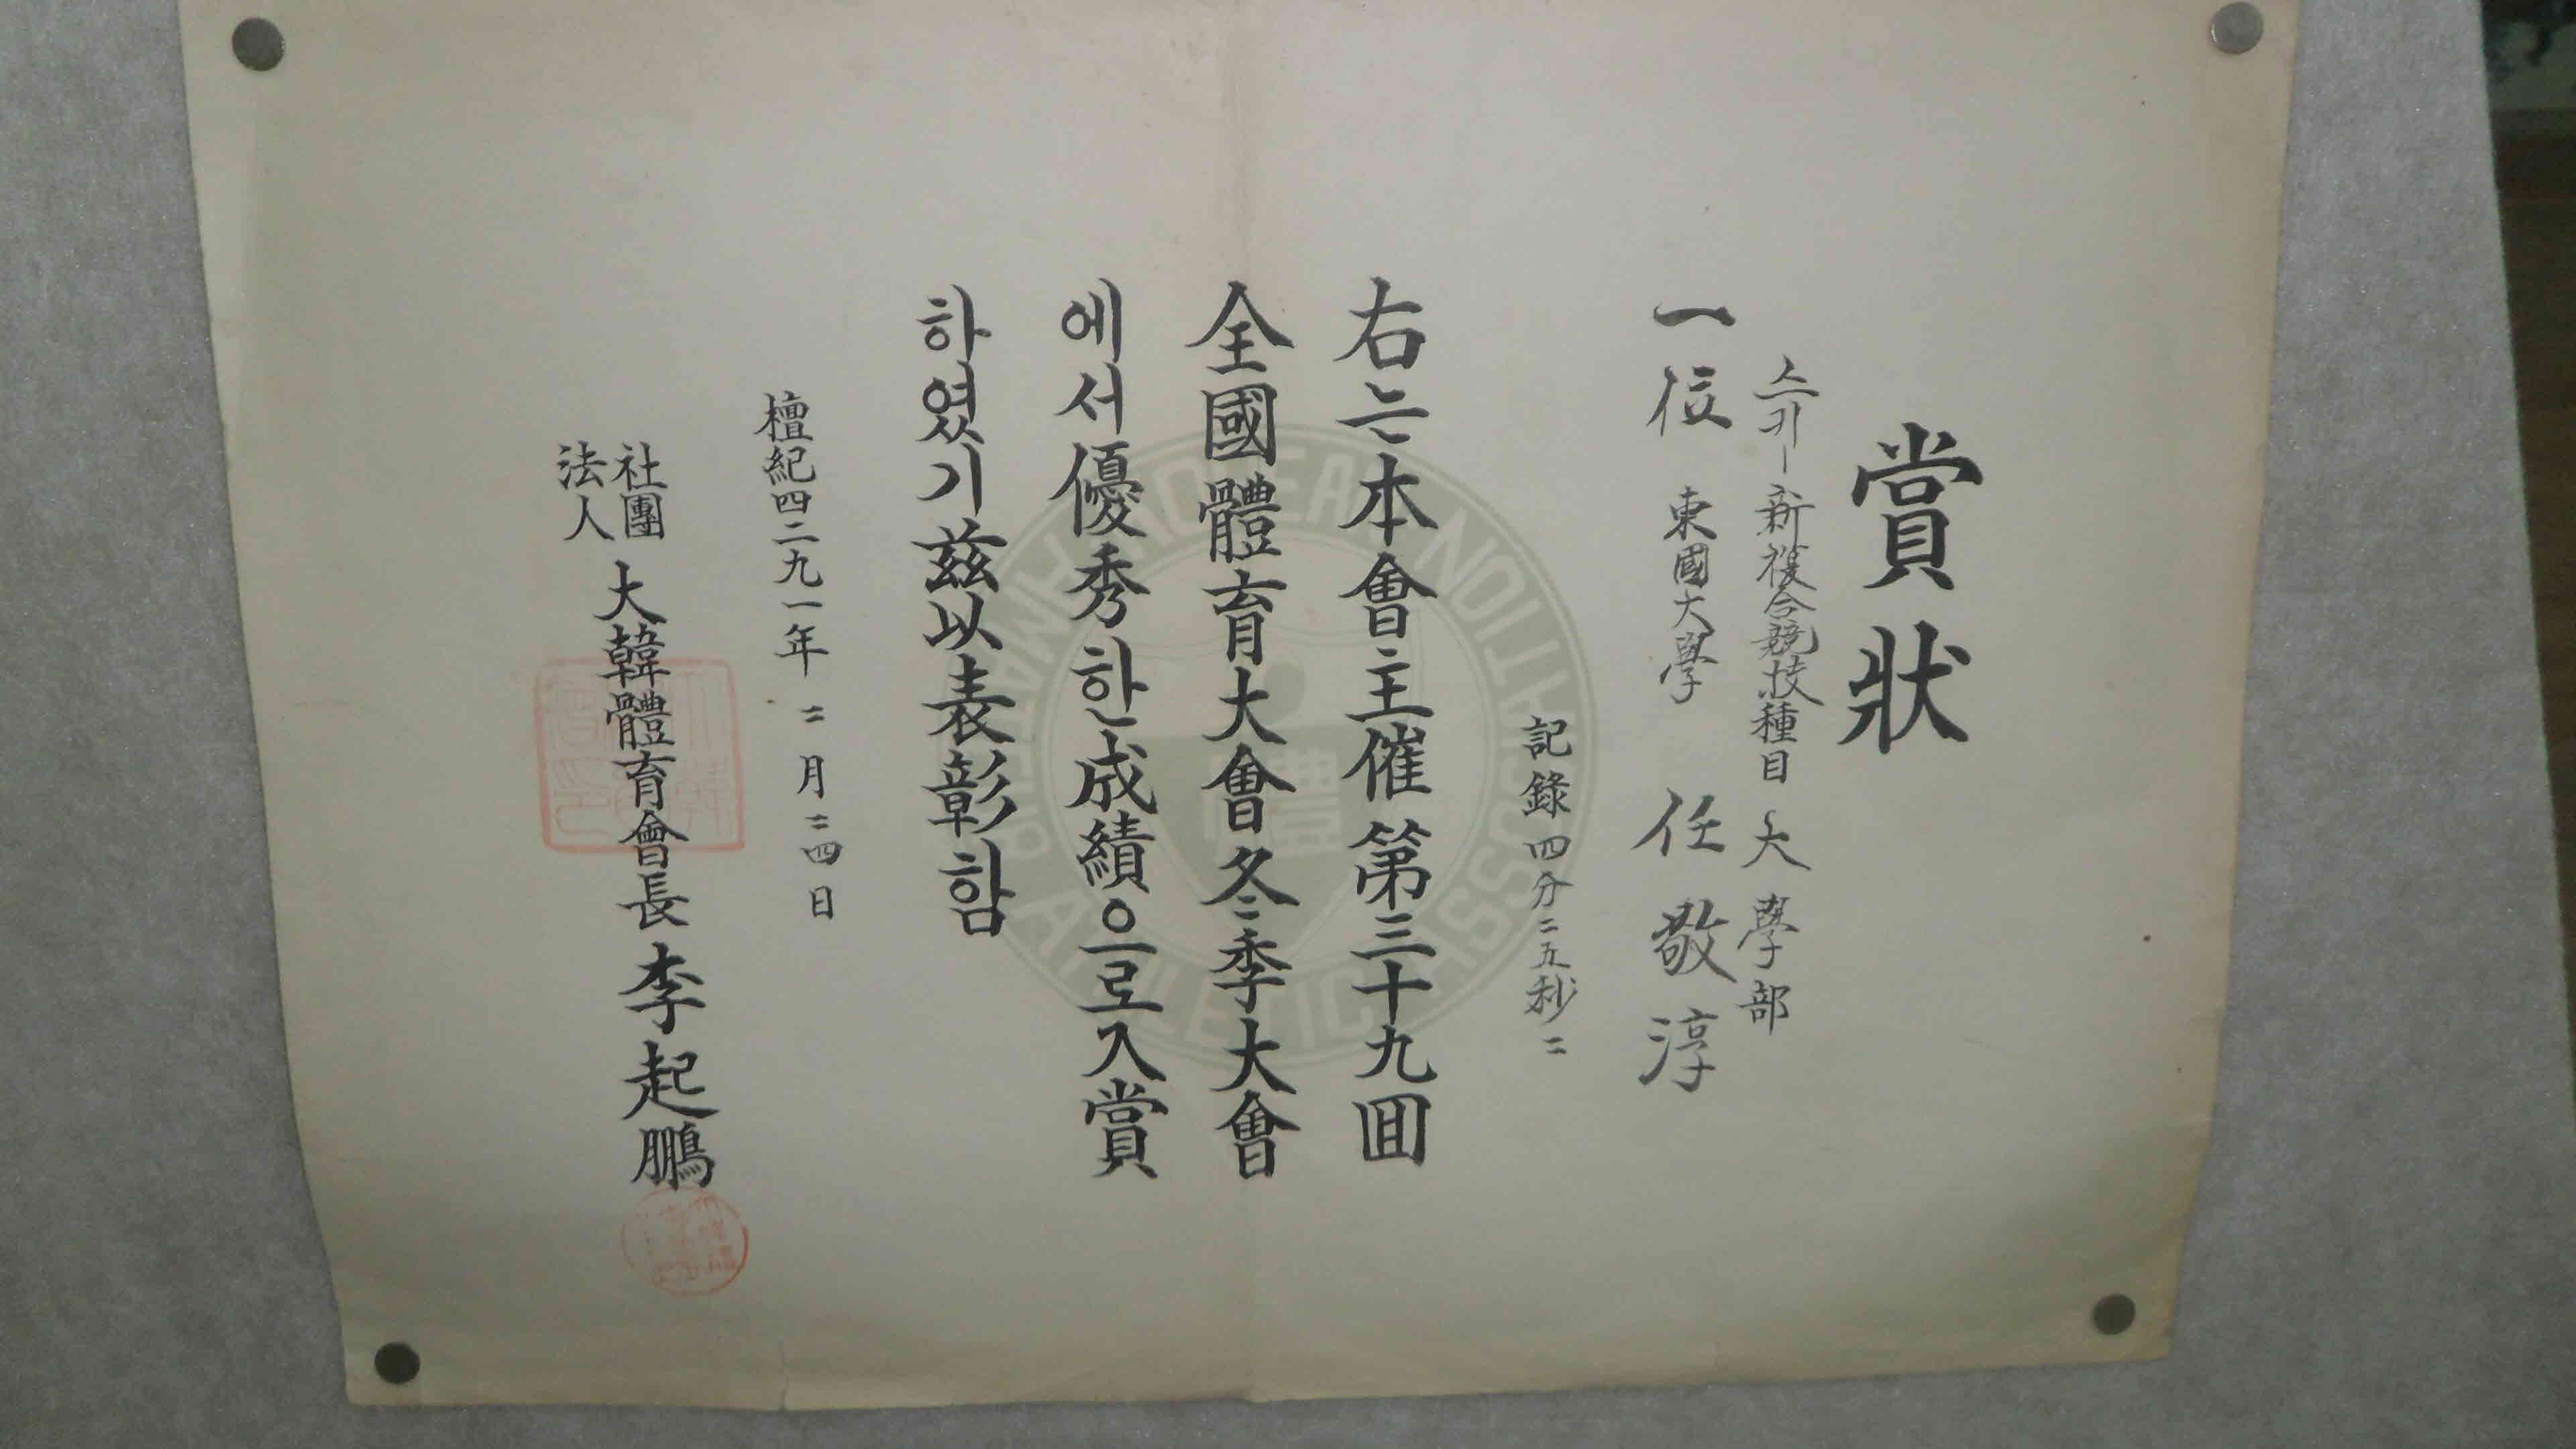 賞狀
스키ー新複合競技種目 大學部
一位 東國大學 任敬淳
記錄 四分二五秒二
右는本會主催第三十九回
全國體育大會冬季大會
에서優秀한成績으로入賞
하였기茲以表彰함
檀紀四二九一年二月二四日
社團
法人
大韓體育會長 李起鵬